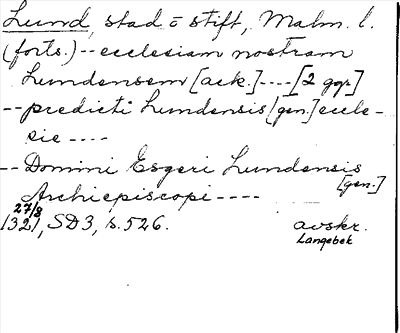 Lund, stad o stift, Malm. l.
(forts.) -- ecclesiam nostram
Lundensem [ack.] ---- [2 ggr]
-- predicti Lundensis [gen.] eccle-
sie ----
-- Domini Esgeri Lundensis
[gen.]
Archiepiscopi ----
27/8
1321, SD3, s. 526. avskr.
Langebek